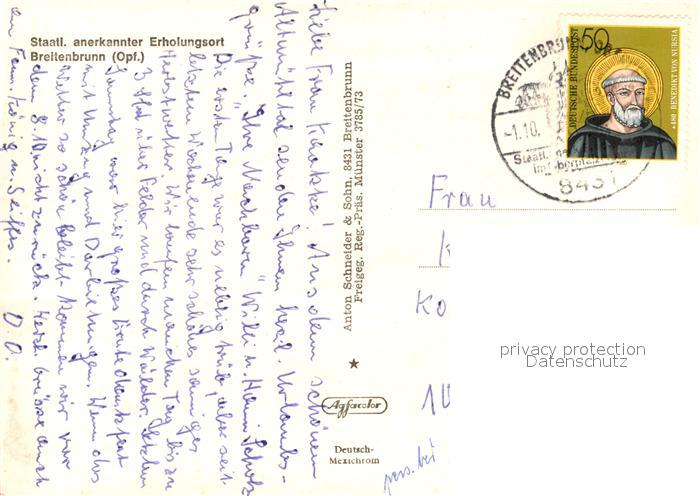 Staatl. anerkannter Erholungsort
Breitenbrunn (Opf.)
Liebe Frau Kaatske! Aus dem schönen
Altmühltal senden Ihnen herzl. Urlaubs-
grüsse "Ihre Nachbarn" Willi u. Hanni Scholz
Die ersten Tage war es neblig trüb, aber seit
letztem Wochenende sehr schönes sonniges
Herbstwetter. Wir laufen manchen Tag bis zu
3 Std über Felder und durch Wälder. Letzten
Sonntag war hier großes Erntedankfest
mit Umzug und Darbietungen. Wenn das
Wetter so schön bleibt kommen wir vor
dem 8.10. nicht zurück. Herzl. Grüsse auch
an Fam. König u. Seiffes.
D. O.
Anton Schneider & Sohn, 8431 Breitenbrunn
Freigeg. Reg.-Präs. Münster 3785/73
Agfacolor
Deutsch-
Mexichrom
BREITENBRUNN
-1.10.
Staatl.
8431
50
DEUTSCHE BUNDESPOST
*480 BENEDIKT VON NURSIA
Frau
K
KO
privacy protection
Datenschutz
pers. bei